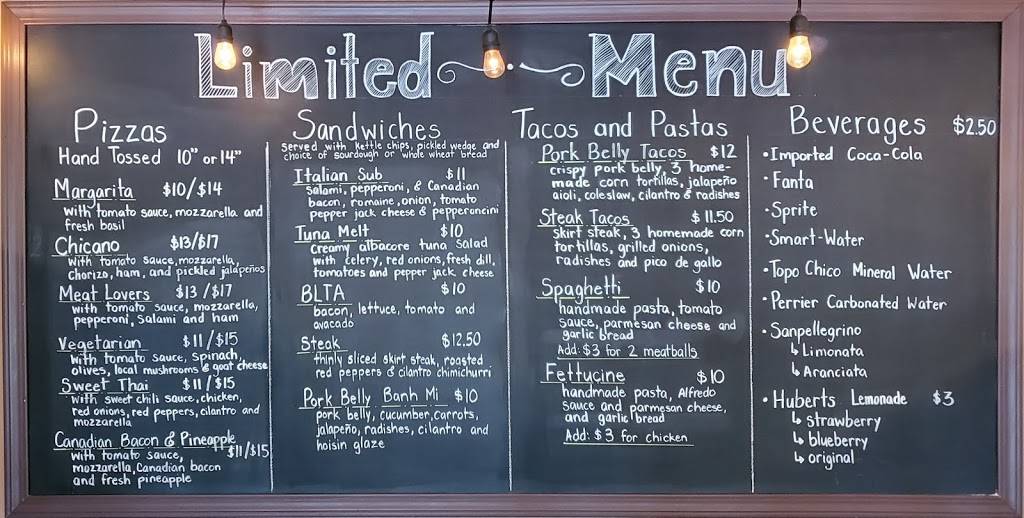 Limited Menu
Pizzas
Hand Tossed 10" or 14"
Margarita $10/$14
with tomato sauce, mozzarella and
fresh basil
Chicano $13/$17
with tomato sauce, mozzarella,
chorizo, ham, and pickled jalapeños
Meat Lovers $13/$17
with tomato sauce, mozzarella,
pepperoni, salami and ham
Vegetarian $11/$15
with tomato sauce, spinach,
olives, local mushrooms & goat cheese
Sweet Thai $11/$15
with sweet chili sauce, chicken,
red onions, red peppers, cilantro and
mozzarella
Canadian Bacon & Pineapple
$11/$15
with tomato sauce,
mozzarella, Canadian bacon
and fresh pineapple
Sandwiches
served with kettle chips, pickled wedge and
choice of sourdough or whole wheat bread
Italian Sub $11
salami, pepperoni, & Canadian
bacon, romaine, onion, tomato
pepper jack cheese & pepperoncini
Tuna Melt $10
creamy albacore tuna salad
with celery, red onions, fresh dill,
tomatoes and pepper jack cheese
BLTA $10
bacon, lettuce, tomato and
avacado
Steak $12.50
thinly sliced skirt steak, roasted
red peppers & cilantro chimichurri
Pork Belly Banh Mi $10
pork belly, cucumber, carrots,
jalapeño, radishes, cilantro and
hoisin glaze
Tacos and Pastas
Pork Belly Tacos $12
crispy pork belly, 3 home-
made corn tortillas, jalapeño
aioli, coleslaw, cilantro & radishes
Steak Tacos $11.50
skirt steak, 3 homemade corn
tortillas, grilled onions,
radishes and pico de gallo
Spaghetti $10
handmade pasta, tomato
sauce, parmesan cheese and
garlic bread
Add: $3 for 2 meatballs
Fettucine $10
handmade pasta, Alfredo
sauce and parmesan cheese,
and garlic bread
Add: $3 for chicken
Beverages $2.50
• Imported Coca-Cola
• Fanta
• Sprite
• Smart-Water
• Topo Chico Mineral Water
• Perrier Carbonated Water
• Sanpellegrino
↳ Limonata
↳ Aranciata
• Huberts Lemonade $3
↳ strawberry
↳ blueberry
↳ original